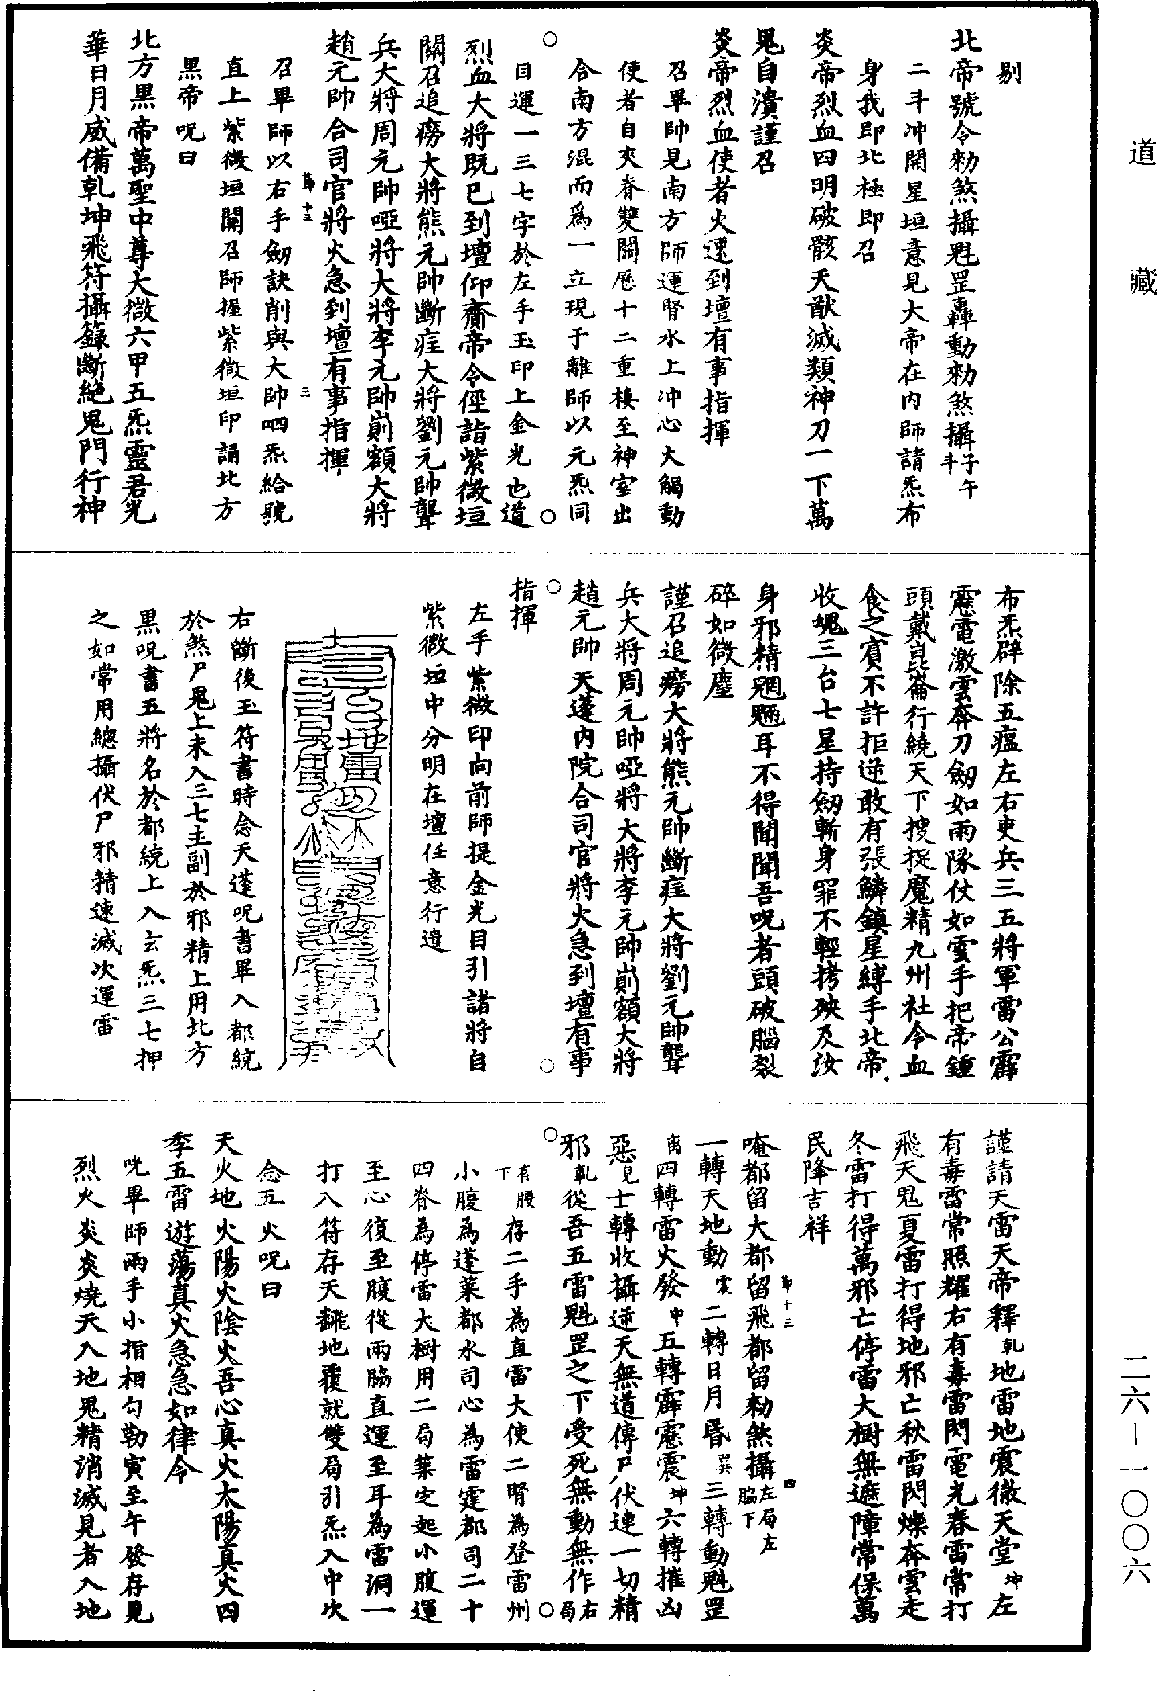 道藏
二六—一〇〇六
剔
北帝號令勑煞攝魁罡轟動勑煞攝子午斗
二斗冲開星垣意見大帝在内師請炁布
身我即北極即召
炎帝烈血四明破骸天猷滅類神刀一下萬
鬼自潰謹召
炎帝烈血使者火速到壇有事指揮
召畢帥見南方師運腎水上冲心火觸動
使者自夾脊雙關歷十二重樓至神室出
合南方混而爲一立現于離師以元炁同
目運一三七字於左手玉印上金光也道
烈血大將既已到壇仰齎帝令徑詣紫微垣
關召追癆大將熊元帥斷疰大將劉元帥聾
兵大將周元帥啞將大將李元帥崩額大將
趙元帥合司官將火急到壇有事指揮
第十三
三
召畢師以右手劒訣削與大帥呬炁給號
直上紫微垣開召師握紫微垣印誦北方
黑帝呪曰
北方黑帝萬聖中尊大微六甲五炁靈君光
華日月威備乾坤飛符攝籙斷絶鬼門行神
布炁辟除五瘟左右吏兵三五將軍雷公霹
靂電激雲奔刀劒如雨隊仗如雲手把帝鍾
頭戴崑崙行繞天下搜捉魔精九州社令血
食之賓不許拒逆敢有張鱗鎮星縛手北帝
收魂三台七星持劒斬身罪不輕拷殃及汝
身邪精魍魎耳不得聞聞吾呪者頭破腦裂
碎如微塵
謹召追癆大將熊元帥斷疰大將劉元帥聾
兵大將周元帥啞將大將李元帥崩額大將
趙元帥天蓬内院合司官將火急到壇有事
指揮
左手紫微印向前師提金光目引諸將自
紫微垣中分明在壇任意行遣
右斷後玉符書時念天蓬呪書畢入都統
於煞尸鬼上未入三七主副於邪精上用北方
黑呪書五將名於都統上入玄炁三七押
之如常用總攝伏尸邪精速滅次運雷
謹請天雷天帝釋乾地雷地震徹天堂坤左
有毒雷常照耀右有毒雷閃電光春雷常打
飛天鬼夏雷打得地邪亡秋雷閃爍奔雲走
冬雷打得萬邪亡停雷大樹無遮障常保萬
民降吉祥
第十三
四
唵都留大都留飛都留勑煞攝左局左脇下
一轉天地動震二轉日月昏巽三轉動魁罡
离四轉雷火發中五轉霹靂震坤六轉摧凶
惡見士轉收攝逆天無道傳尸伏連一切精
邪乾從吾五雷魁罡之下受死無動無作右局
右腰下存二手為直雷大使二腎為登雷州
小腹為蓬萊都水司心為雷霆都司二十
四脊為停雷大樹用二局葉定起小腹運
至心復至腹從兩脇直運至耳為雷洞一
打入符存天翻地覆就雙局引炁入中次
念五火呪曰
天火地火陽火陰火吾心真火太陽真火四
季五雷遊蕩真火急急如律令
呪畢師兩手小指相勾勒寅至午發存見
烈火炎炎燒天入地鬼精消滅見者入地